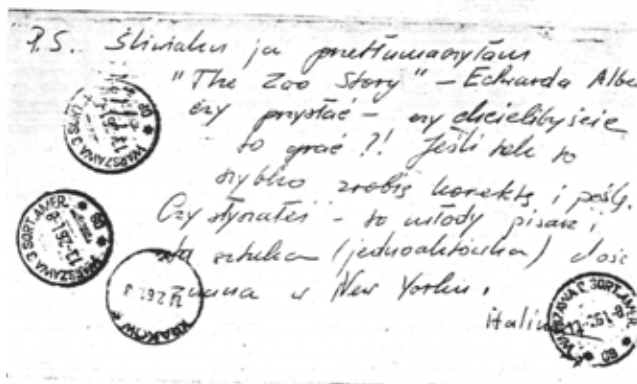 P.S. Śliwiaku ja przetłumaczyłam
"The Zoo Story" – Edwarda Albe
czy przysłać – czy chcielibyście
to grać ?! Jeśli tak to
szybko zrobię korektę i poślę.
Czy słyszałeś – to młody pisarz i
sztuka (jednoaktówka) dość
znana w New Yorku.
Halina
WARSZAWA 3 SORT-AMER.
WARSZAWA 3 SORT-AMER.
KRAKÓW
WARSZAWA 3 SORT-AMER.